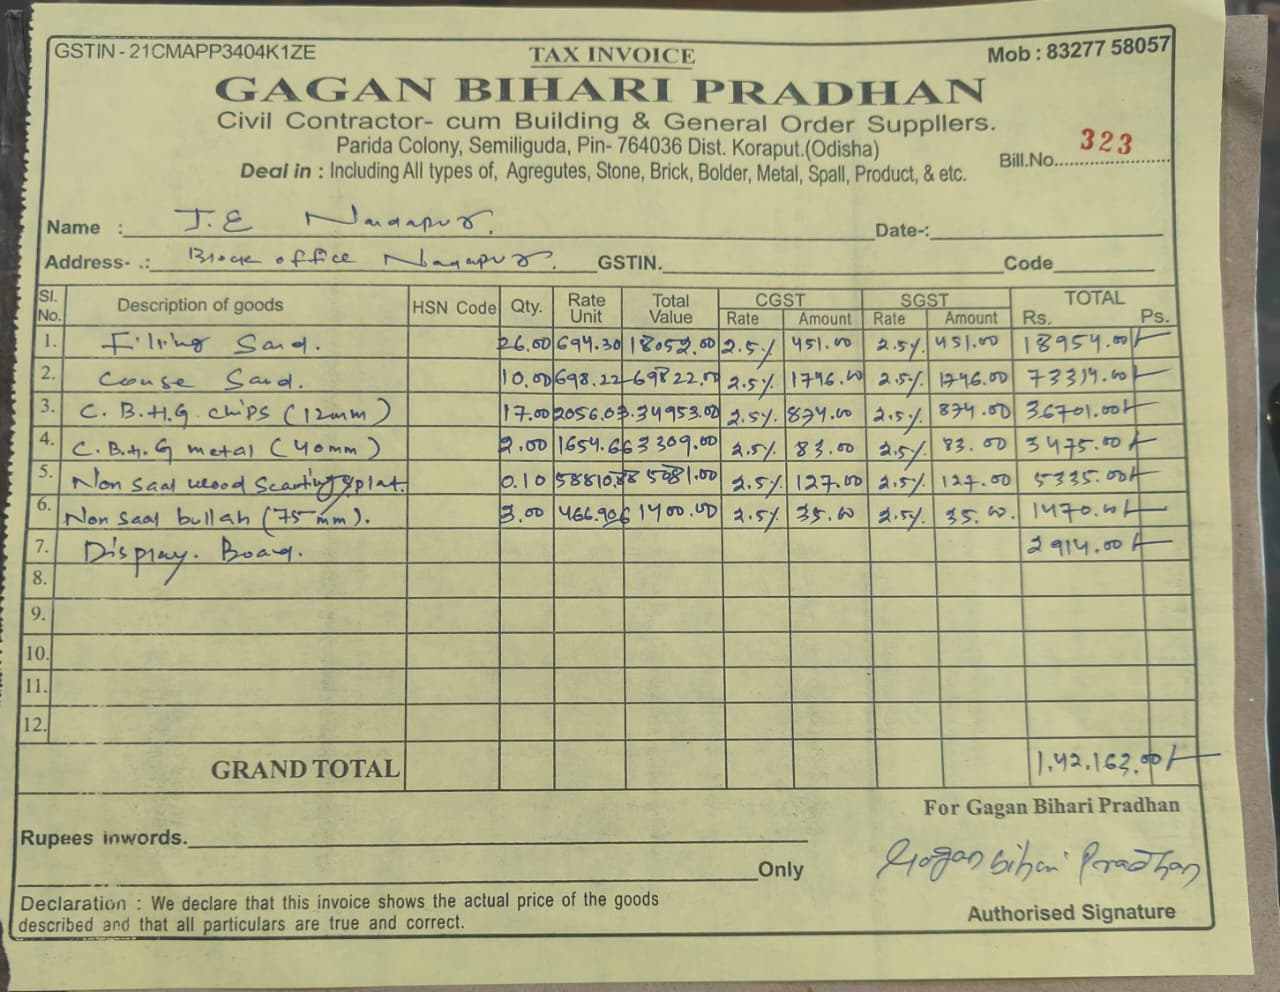 GSTIN - 21CMAPP3404K1ZE TAX INVOICE Mob : 83277 58057
GAGAN BIHARI PRADHAN
Civil Contractor- cum Building & General Order Suppllers.
Parida Colony, Semiliguda, Pin- 764036 Dist. Koraput.(Odisha)
Bill.No. 323
Deal in : Including All types of, Agregutes, Stone, Brick, Bolder, Metal, Spall, Product, & etc.
Name : J.E Date-:
Address- .: office GSTIN. Code
Sl. No. Description of goods HSN Code Qty. Rate Unit Total Value CGST Rate Amount SGST Rate Amount TOTAL Rs. Ps.
1. Sand. 26.00 694.30 18052.00 2.5% 451.00 2.5% 451.00 18954.00/-
2. Couse Sand. 10.00 698.22 69822.00 2.5% 1746.00 2.5% 1746.00 73314.00/-
3. C. B.H.G chips (12mm) 17.00 2056.03 34953.00 2.5% 874.00 2.5% 874.00 36701.00/-
4. C.B.H.G metal (40mm) 2.00 1654.66 3309.00 2.5% 83.00 2.5% 83.00 3475.00/-
5. Non Saal wood 0.10 5081.00 2.5% 127.00 2.5% 127.00 5335.00/-
6. Non Saal bullah (75mm). 3.00 466.906 1400.00 2.5% 35.00 2.5% 35.00. 1470.00/-
7. Display. Board. 2914.00/-
8.
9.
10.
11.
12.
GRAND TOTAL 1,42,163.00/-
For Gagan Bihari Pradhan
Rupees inwords.
Gagan bihari Pradhan
Only
Authorised Signature
Declaration : We declare that this invoice shows the actual price of the goods
described and that all particulars are true and correct.